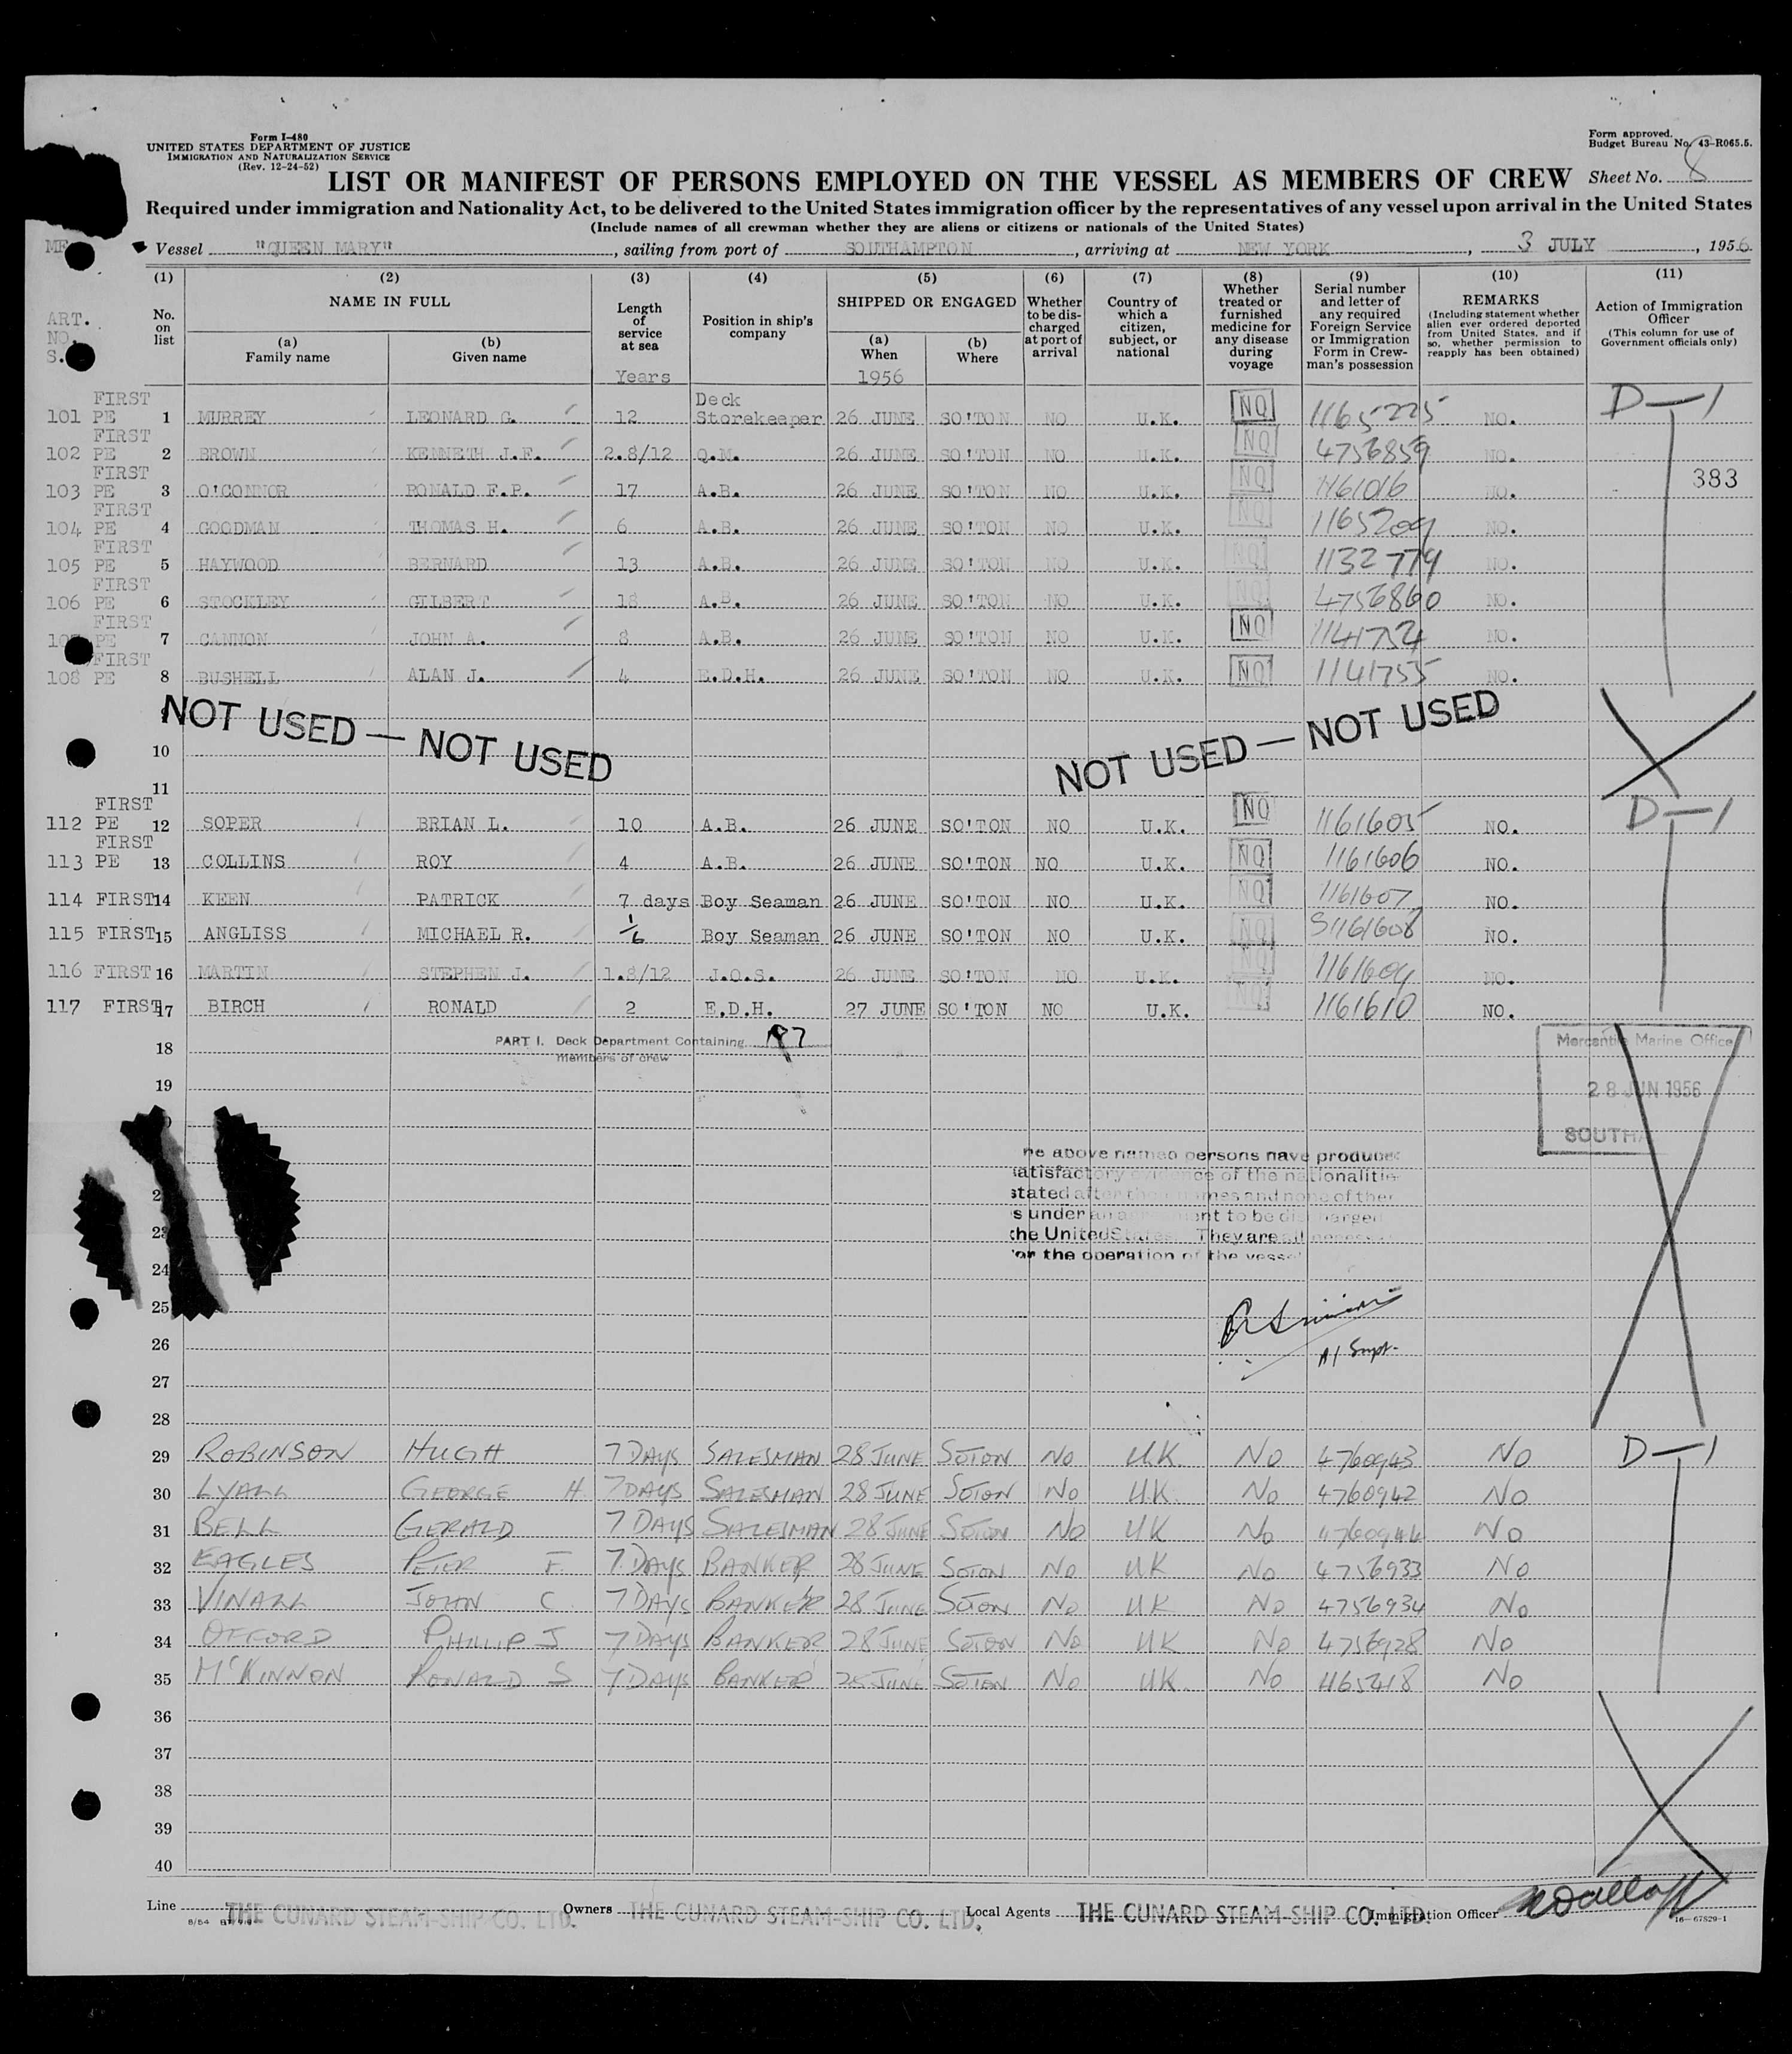 Form I-480
UNITED STATES DEPARTMENT OF JUSTICE
IMMIGRATION AND NATURALIZATION SERVICE
(Rev. 12-24-52)
Form approved.
Budget Bureau No. 43-R065.5.
LIST OR MANIFEST OF PERSONS EMPLOYED ON THE VESSEL AS MEMBERS OF CREW Sheet No. 8
Required under immigration and Nationality Act, to be delivered to the United States immigration officer by the representatives of any vessel upon arrival in the United States
(Include names of all crewman whether they are aliens or citizens or nationals of the United States)
Vessel "QUEEN MARY", sailing from port of SOUTHAMPTON, arriving at NEW YORK, 3 JULY, 1956
(1) (2) (3) (4) (5) (6) (7) (8) (9) (10) (11)
ART. NO. S.
No. on list
NAME IN FULL
(a) Family name
(b) Given name
Length of service at sea
Years
Position in ship's company
SHIPPED OR ENGAGED
(a) When
1956
(b) Where
Whether to be discharged at port of arrival
Country of which a citizen, subject, or national
Whether treated or furnished medicine for any disease during voyage
Serial number and letter of any required Foreign Service or Immigration Form in Crewman's possession
REMARKS
(Including statement whether alien ever ordered deported from United States, and if so, whether permission to reapply has been obtained)
Action of Immigration Officer
(This column for use of Government officials only)
101 FIRST PE 1 MURREY LEONARD G. 12 Deck Storekeeper 26 JUNE SO'TON NO U.K. NO 1165225 NO. D-1
102 FIRST PE 2 BROWN KENNETH J.F. 2.8/12 Q.M. 26 JUNE SO'TON NO U.K. NO 4756859 NO.
103 FIRST PE 3 O'CONNOR RONALD F.P. 17 A.B. 26 JUNE SO'TON NO U.K. NO 1161016 NO. 383
104 FIRST PE 4 GOODMAN THOMAS H. 6 A.B. 26 JUNE SO'TON NO U.K. NO 1165209 NO.
105 FIRST PE 5 HAYWOOD BERNARD 13 A.B. 26 JUNE SO'TON NO U.K. NO 1132779 NO.
106 FIRST PE 6 STOCKLEY GILBERT 18 A.B. 26 JUNE SO'TON NO U.K. NO 4756860 NO.
FIRST PE 7 CANNON JOHN A. 8 A.B. 26 JUNE SO'TON NO U.K. NO 1141754 NO.
108 FIRST PE 8 BUSHELL ALAN J. 4 E.D.H. 26 JUNE SO'TON NO U.K. NO 1141755 NO.
NOT USED — NOT USED NOT USED — NOT USED
10
11
112 FIRST PE 12 SOPER BRIAN L. 10 A.B. 26 JUNE SO'TON NO U.K. NO 1161605 NO. D-1
113 FIRST PE 13 COLLINS ROY 4 A.B. 26 JUNE SO'TON NO U.K. NO 1161606 NO.
114 FIRST 14 KEEN PATRICK 7 days Boy Seaman 26 JUNE SO'TON NO U.K. NO 1161607 NO.
115 FIRST 15 ANGLISS MICHAEL R. 1/6 Boy Seaman 26 JUNE SO'TON NO U.K. NO 1161608 NO.
116 FIRST 16 MARTIN STEPHEN J. 1.8/12 J.O.S. 26 JUNE SO'TON NO U.K. NO 1161609 NO.
117 FIRST 17 BIRCH RONALD 2 E.D.H. 27 JUNE SO'TON NO U.K. NO 1161610 NO.
18 PART I. Deck Department Containing 97
members of crew
Mercantile Marine Office
19
28 JUN 1956
SOUTH
above named persons have produce
satisfactory evidence of the nationalitie
stated after their names and none of the
under an agreement to be discharged
the United States. They are all necess
for the operation of the vessel
24
25
26 A/ Supt.
27
28
29 ROBINSON HUGH 7 DAYS SALESMAN 28 JUNE SOTON NO U.K. NO 4760943 NO D-1
30 LYALL GEORGE H. 7 DAYS SALESMAN 28 JUNE SOTON NO UK NO 4760942 NO
31 BELL GERALD 7 DAYS SALESMAN 28 JUNE SOTON NO UK NO 4760944 NO
32 EAGLES PETER F. 7 DAYS BANKER 28 JUNE SOTON NO UK NO 4756933 NO
33 VINALL JOHN C 7 DAYS BANKER 28 JUNE SOTON NO UK NO 4756934 NO
34 OFFORD PHILLIP J 7 DAYS BANKER 28 JUNE SOTON NO UK NO 4756928 NO
35 McKINNON RONALD S 7 DAYS BANKER JUNE SOTON NO UK. NO 1165418 NO
36
37
38
39
40
Line THE CUNARD STEAM-SHIP CO. LTD. Owners THE CUNARD STEAM-SHIP CO. LTD. Local Agents THE CUNARD STEAM-SHIP CO. LTD. Immigration Officer
16-67829-1